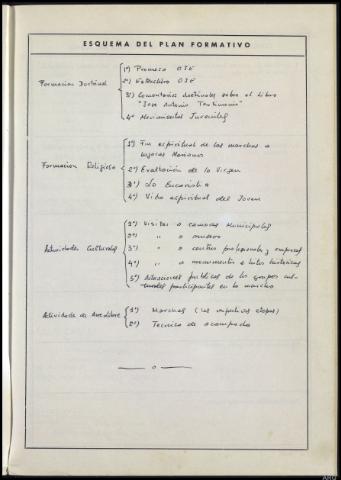 ESQUEMA DEL PLAN FORMATIVO
Formacion Doctrinal
1º) Promesa OJE
2º) Estructura OJE
3º) Comentarios doctrinales sobre el Libro
"Jose Antonio Testimonio"
4º Movimientos Juveniles
Formacion Religiosa
1º) Fin espiritual de las marchas a
lugares Marianos
2º) Exaltación de la Virgen
3º) La Eucaristia
4º) Vida espiritual del Joven
Actividades Culturales
1º) Visitas a Municipales
2º) " a museos
3º) " a centros profesionales y empresas
4º) " a monumentos e hitos historicos
5º) Actuaciones publicas de los grupos cul-
turales participantes en la marcha
Actividades de Aire Libre
1º) Marchas (las respectivas etapas)
2º) Tecnica de acampada